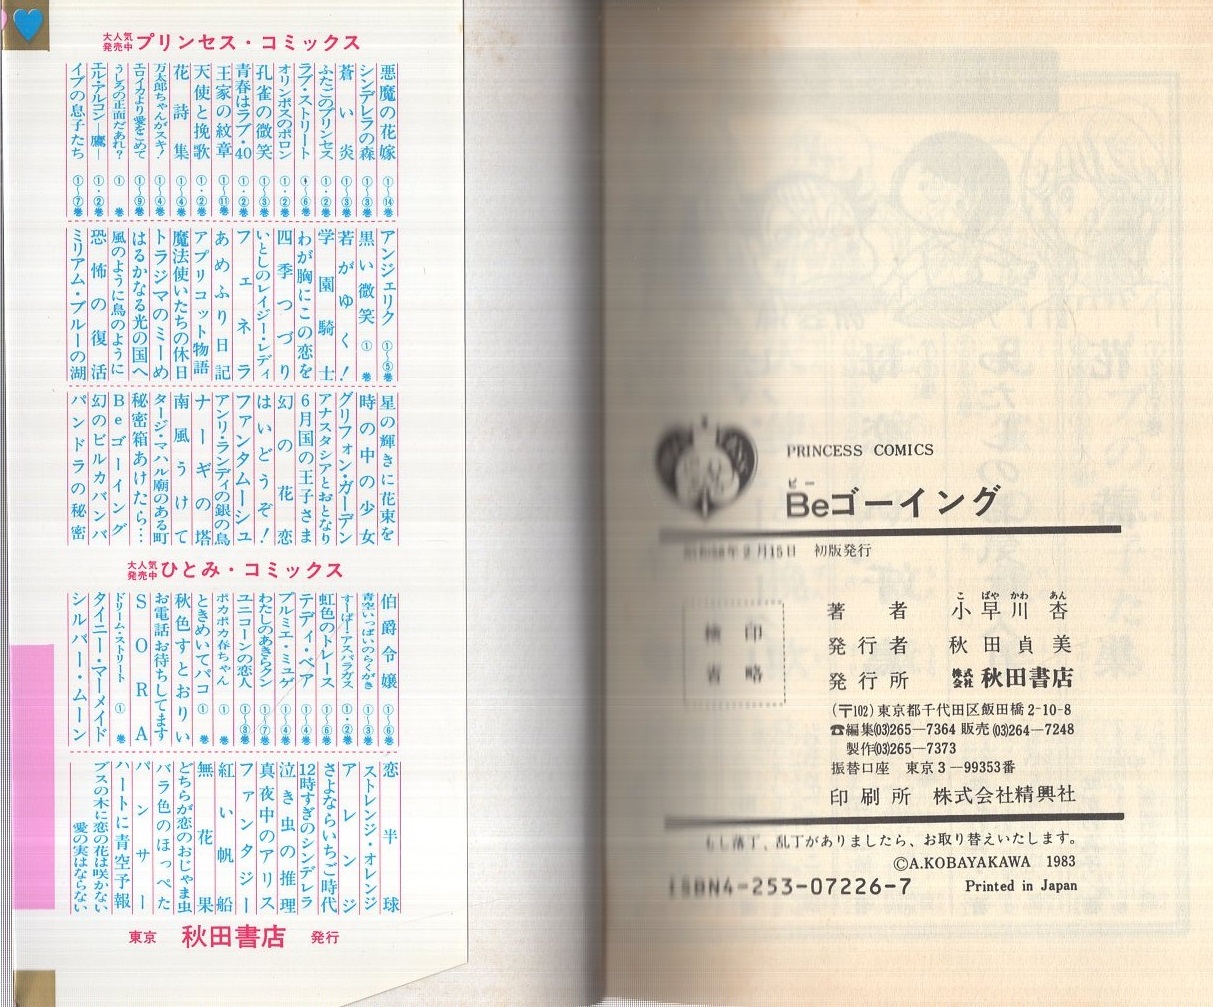 大人気発売中 プリンセス・コミックス
悪魔の花嫁 ①〜⑭巻
シンデレラの森 ①〜③巻
蒼い炎 ①〜③巻
ふたごのプリンセス ①・②巻
ラブ・ストリート
オリンポスのポロン ①・②巻
孔雀の微笑 ①〜③巻
青春はラブ・40 ①・②巻
王家の紋章 ①〜⑪巻
天使と挽歌 ①・②巻
花詩集 ①〜④巻
万太郎ちゃんがスキ! ①〜④巻
エロイカより愛をこめて ①〜⑨巻
うしろの正面だあれ? ① 巻
エル・アルコン―鷹― ①・②巻
イブの息子たち ①〜⑦巻
アンジェリク ①〜⑤巻
黒い微笑 ① 巻
若がゆく!
学園騎士
わが胸にこの恋を
四季つづり
いとしのレイジー・レディ
フェネラ
あめふり日記
アプリコット物語
魔法使いたちの休日
トラジマのミーめ
はるかなる光の国へ
風のように鳥のように
恐怖の復活
ミリアム・ブルーの湖
星の輝きに花束を
時の中の少女
グリフォン・ガーデン
アナスタシアとおとなり
6月国の王子さま
幻の花恋
はいどうぞ!
ファンタムーシュ
アンリ・ランディの銀の鳥
ナーギの塔
南風うけて
タージ・マハル廟のある町
秘密箱あけたら…
Beゴーイング
幻のビルカバンバ
パンドラの秘密
大人気発売中 ひとみ・コミックス
伯爵令嬢 ①〜⑥巻
青空いっぱいのらくがき ①〜③巻
すーぱー・アスパラガス ①・②巻
虹色のトレース ①〜⑥巻
テディ・ベア ①〜④巻
プルミエ・ミュゲ ①〜④巻
わたしのあきらクン ①〜⑦巻
ユニコーンの恋人 ①〜③巻
ポカポカ春ちゃん ① 巻
ときめいてバコ ① 巻
秋色すとおりい
お電話お待ちしてます
SORA
ドリーム・ストリート ① 巻
タイニー・マーメイド
シルバー・ムーン
恋半球
ストレンジ・オレンジ
アレンジ
さよならいちご時代
12時すぎのシンデレラ
泣き虫の推理
真夜中のアリス
ファンタジー
紅い帆船
無花果
どちらが恋のおじゃま虫
バラ色のほっぺた
パンサー
ハートに青空予報
ブスの木に恋の花は咲かない
愛の実はならない
東京 秋田書店 発行
PRINCESS COMICS
ビー
Beゴーイング
月15日 初版発行
検印
省略
著者 小早川杏
こばやかわあん
発行者 秋田貞美
発行所 株式会社 秋田書店
(〒102)東京都千代田区飯田橋2-10-8
☎編集(03)265―7364 販売(03)264―7248
製作(03)265―7373
振替口座 東京3―99353番
印刷所 株式会社精興社
もし落丁、乱丁がありましたら、お取り替えいたします。
©A.KOBAYAKAWA 1983
ISBN4-253-07226-7
Printed in Japan